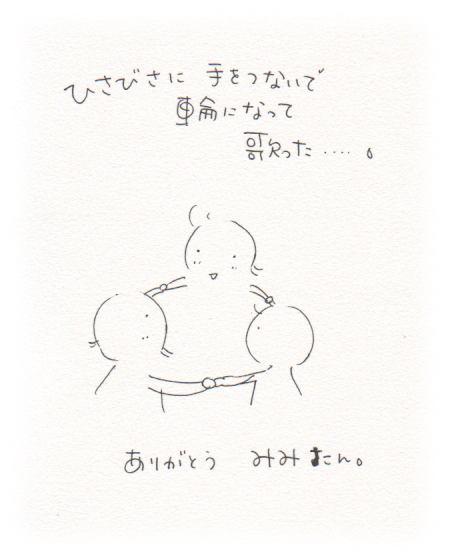 ひさびさに 手をつないで
車輪になって
歌った‥‥。
ありがとう みみたん。